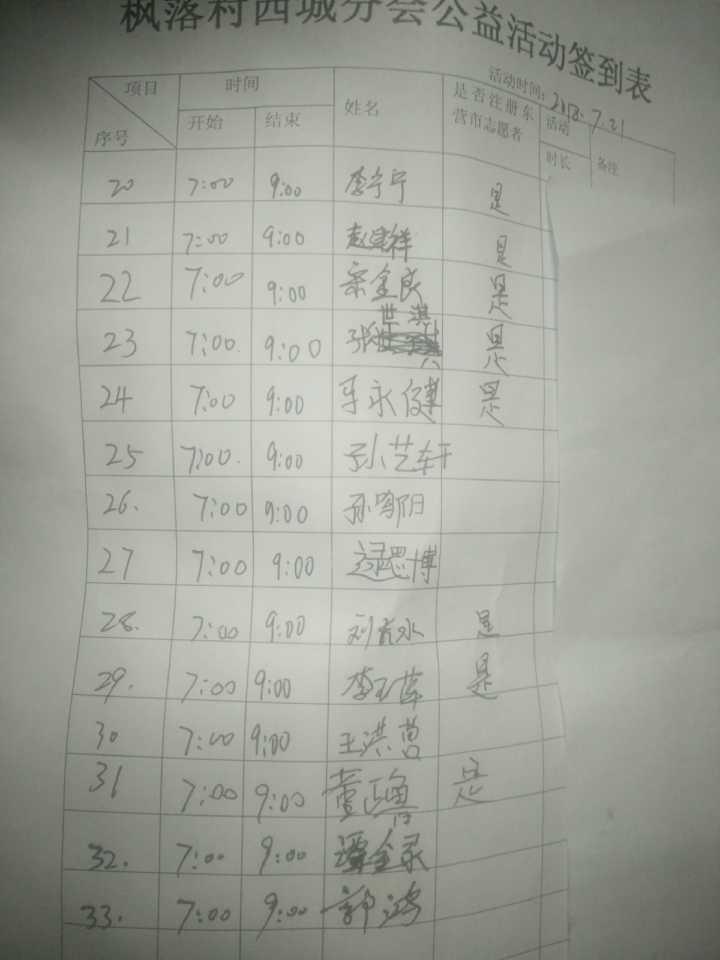 枫落村西城分会公益活动签到表
活动时间: 2018.7.21
项目 时间 姓名 是否注册东营市志愿者 活动时长 备注
序号 开始 结束
20 7:00 9:00 李宁宁 是
21 7:00 9:00 赵建祥 是
22 7:00 9:00 宗金良 是
23 7:00 9:00 张世淇 是
24 7:00 9:00 王永健 是
25 7:00 9:00 孙艺轩
26. 7:00 9:00 孙鸣阳
27 7:00 9:00 逯思博
28. 7:00 9:00 刘吉水 是
29. 7:00 9:00 李玉萍 是
30 7:00 9:00 王洪昌
31 7:00 9:00 董 是
32. 7:00 9:00 谭金录
33. 7:00 9:00 郭鸿